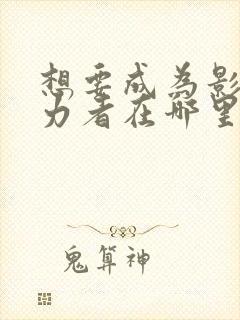 想要成为影
力者在哪里
鬼算神